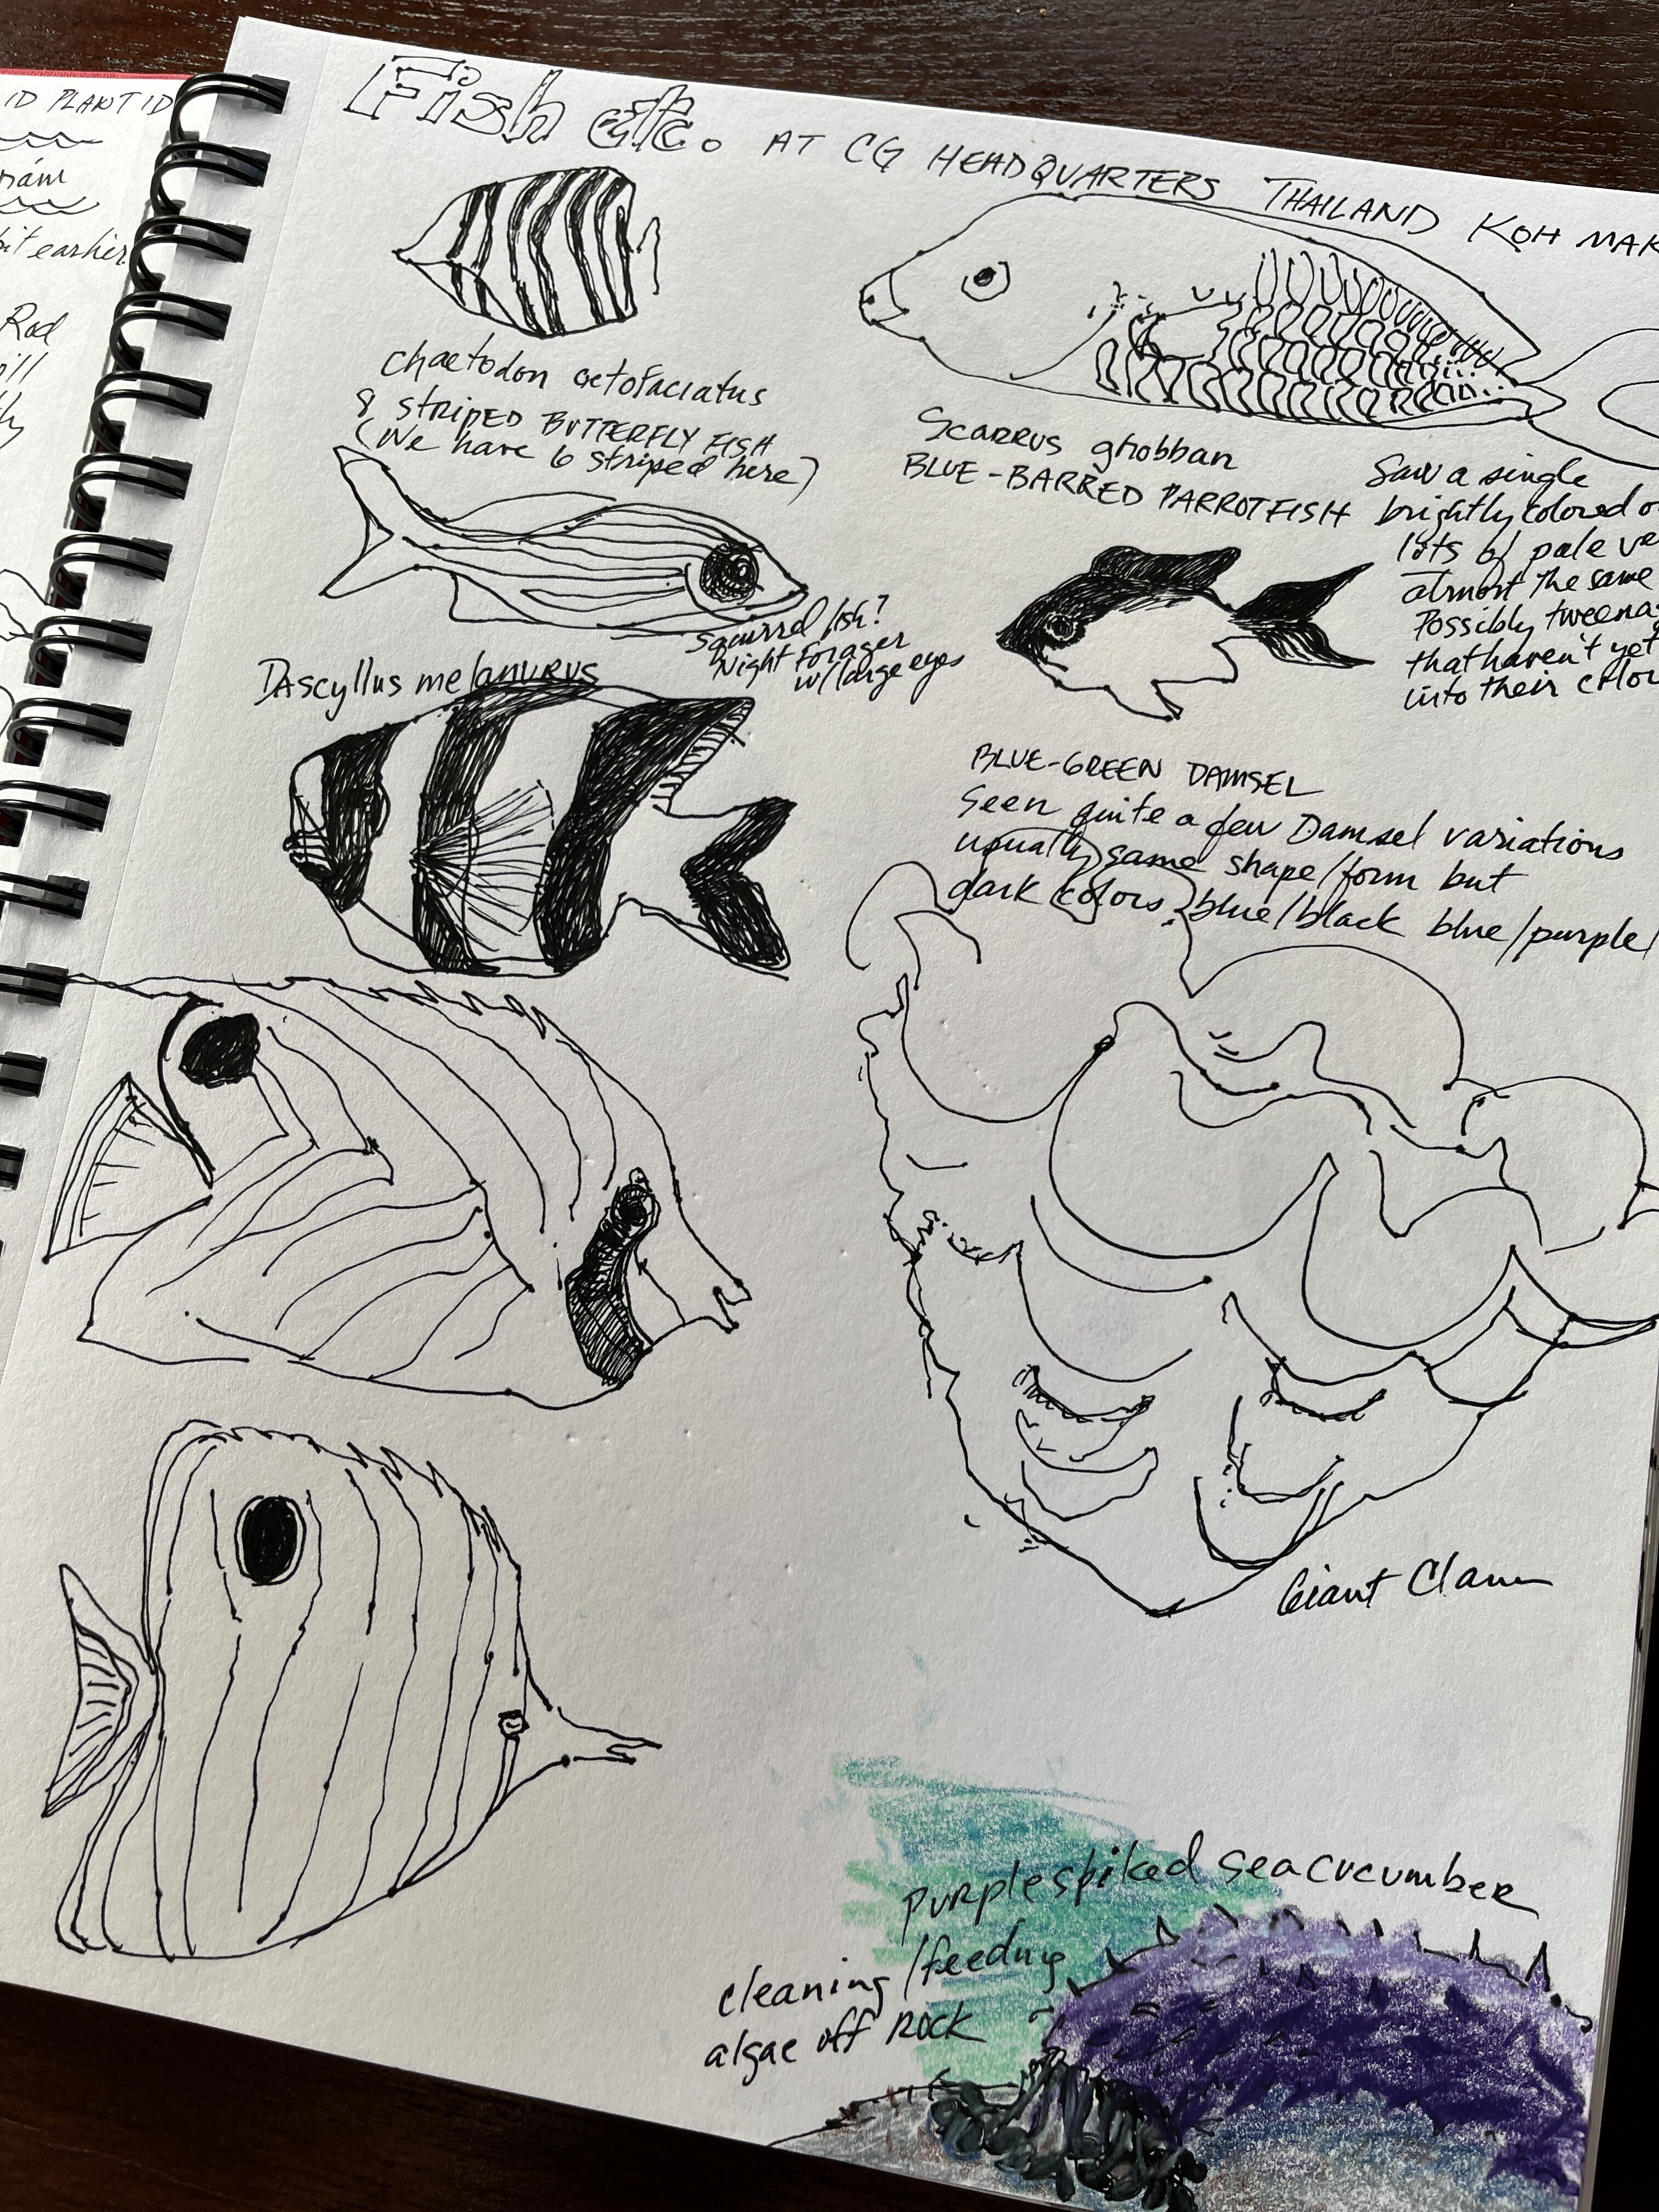 ID PLANT ID
bit earlier
Rod
Fish etc. AT CG HEADQUARTERS THAILAND KOH MAK
chaetodon octofaciatus
8 STRIPED BUTTERFLY FISH
(We have 6 striped here)
Scarrus ghobban
BLUE-BARRED PARROTFISH
Saw a single
brightly colored
lots of pale
almost the same
Possibly
that haven't yet
into their
squirrel fish?
Night Forager
w/large eyes
Dascyllus melanurus
BLUE-GREEN DAMSEL
Seen quite a few Damsel variations
usually same shape/form but
dark colors blue/black blue/purple/
Giant Clam
purple spiked sea cucumber
cleaning/feeding
algae off rock